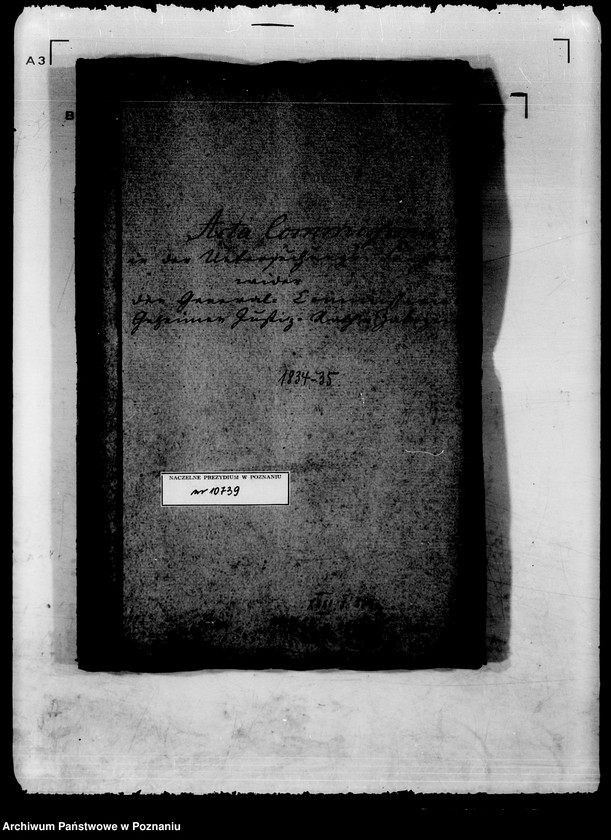 A3
B
Acta Commissionis
in der Untersuchungs-Sache
wider
den General-Commissarius
Geheimen Justiz-Rath
1834-35
NACZELNE PREZYDIUM W POZNANIU
nr 10739
Archiwum Państwowe w Poznaniu